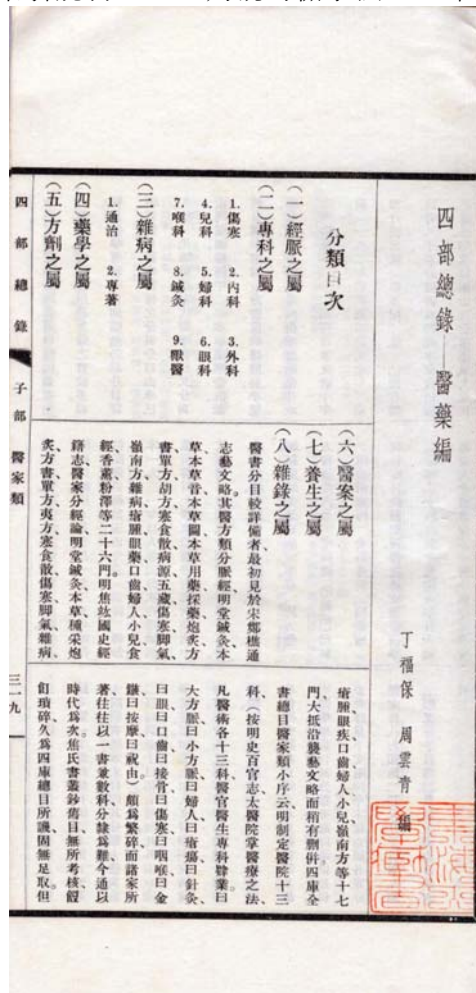 四部總錄——醫藥編
丁福保 周雲青 編
分類目次
(一)經脈之屬
(二)專科之屬
1.傷寒 2.內科 3.外科
4.兒科 5.婦科 6.眼科
7.喉科 8.鍼灸 9.獸醫
(三)雜病之屬
1.通治 2.專著
(四)藥學之屬
(五)方劑之屬
(六)醫案之屬
(七)養生之屬
(八)雜錄之屬
醫書分目較詳備者、最初見於宋鄭樵通
志藝文略。其醫方類分脈經、明堂鍼灸、本
草、本草音、本草圖、本草用藥、採藥、炮炙、方
書、單方、胡方、寒食散、病源、五藏、傷寒、腳氣、
嶺南方、雜病、瘡腫、眼藥、口齒、婦人、小兒、食
經、香薰、粉澤等二十六門。明焦竑國史經
籍志醫家分經論、明堂鍼灸、本草、種采炮
炙、方書、單方、夷方、寒食散、傷寒、腳氣、雜病、
瘡腫、眼疾、口齒、婦人、小兒、嶺南方等十七
門、大抵沿襲藝文略而稍有刪併。四庫全
書總目醫家類小序云、明制定醫院十三
科、(按明史百官志、太醫院掌醫療之法、
凡醫術各十三科、醫官醫生專科肄業、曰
大方脈、曰小方脈、曰婦人、曰瘡瘍、曰針灸、
曰眼、曰口齒、曰接骨、曰傷寒、曰咽喉、曰金
鏃、曰按摩、曰祝由)頗為繁碎、而諸家所
著、往往以一書兼數科、分隸為難、今通以
時代為次。焦氏書叢鈔舊目、無所考核、餖
飣瑣碎、久為四庫總目所譏、固無足取。但
四部總錄 子部 醫家類 三一九